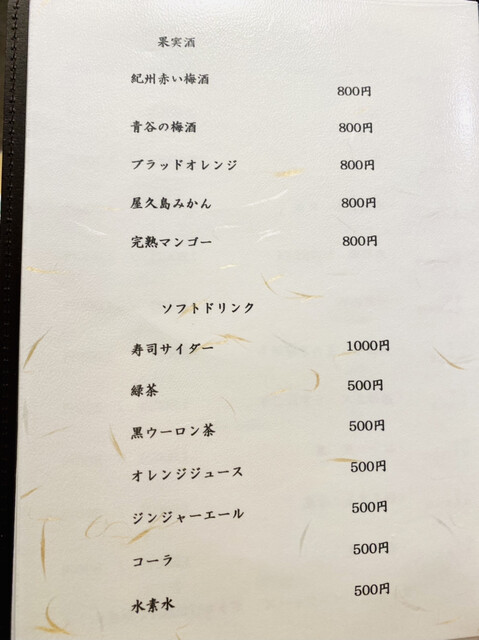 果実酒
紀州赤い梅酒 800円
青谷の梅酒 800円
ブラッドオレンジ 800円
屋久島みかん 800円
完熟マンゴー 800円
ソフトドリンク
寿司サイダー 1000円
緑茶 500円
黒ウーロン茶 500円
オレンジジュース 500円
ジンジャーエール 500円
コーラ 500円
水素水 500円